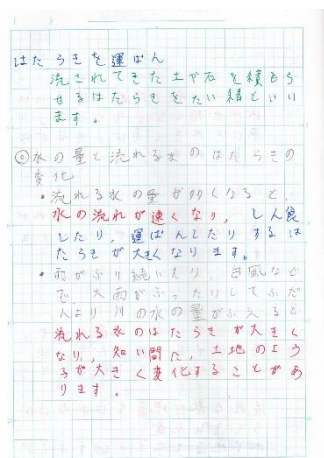 はたらきを運ぱん
流されてきた土や石を積もら
せるはたらきをたい積といい
ます。
◎水の量と流れる水のはたらきの
変化
・流れる水の量が多くなると、
水の流れが速くなり、しん食
したり、運ぱんしたりするは
たらきが大きくなります。
・雨がふり続いたり、台風など
で、大雨がふったりしてふだ
んより川の水の量がふえると
流れる水のはたらきが大きく
なり、短い間に、土地のよう
すが大きく変化することがあ
ります。